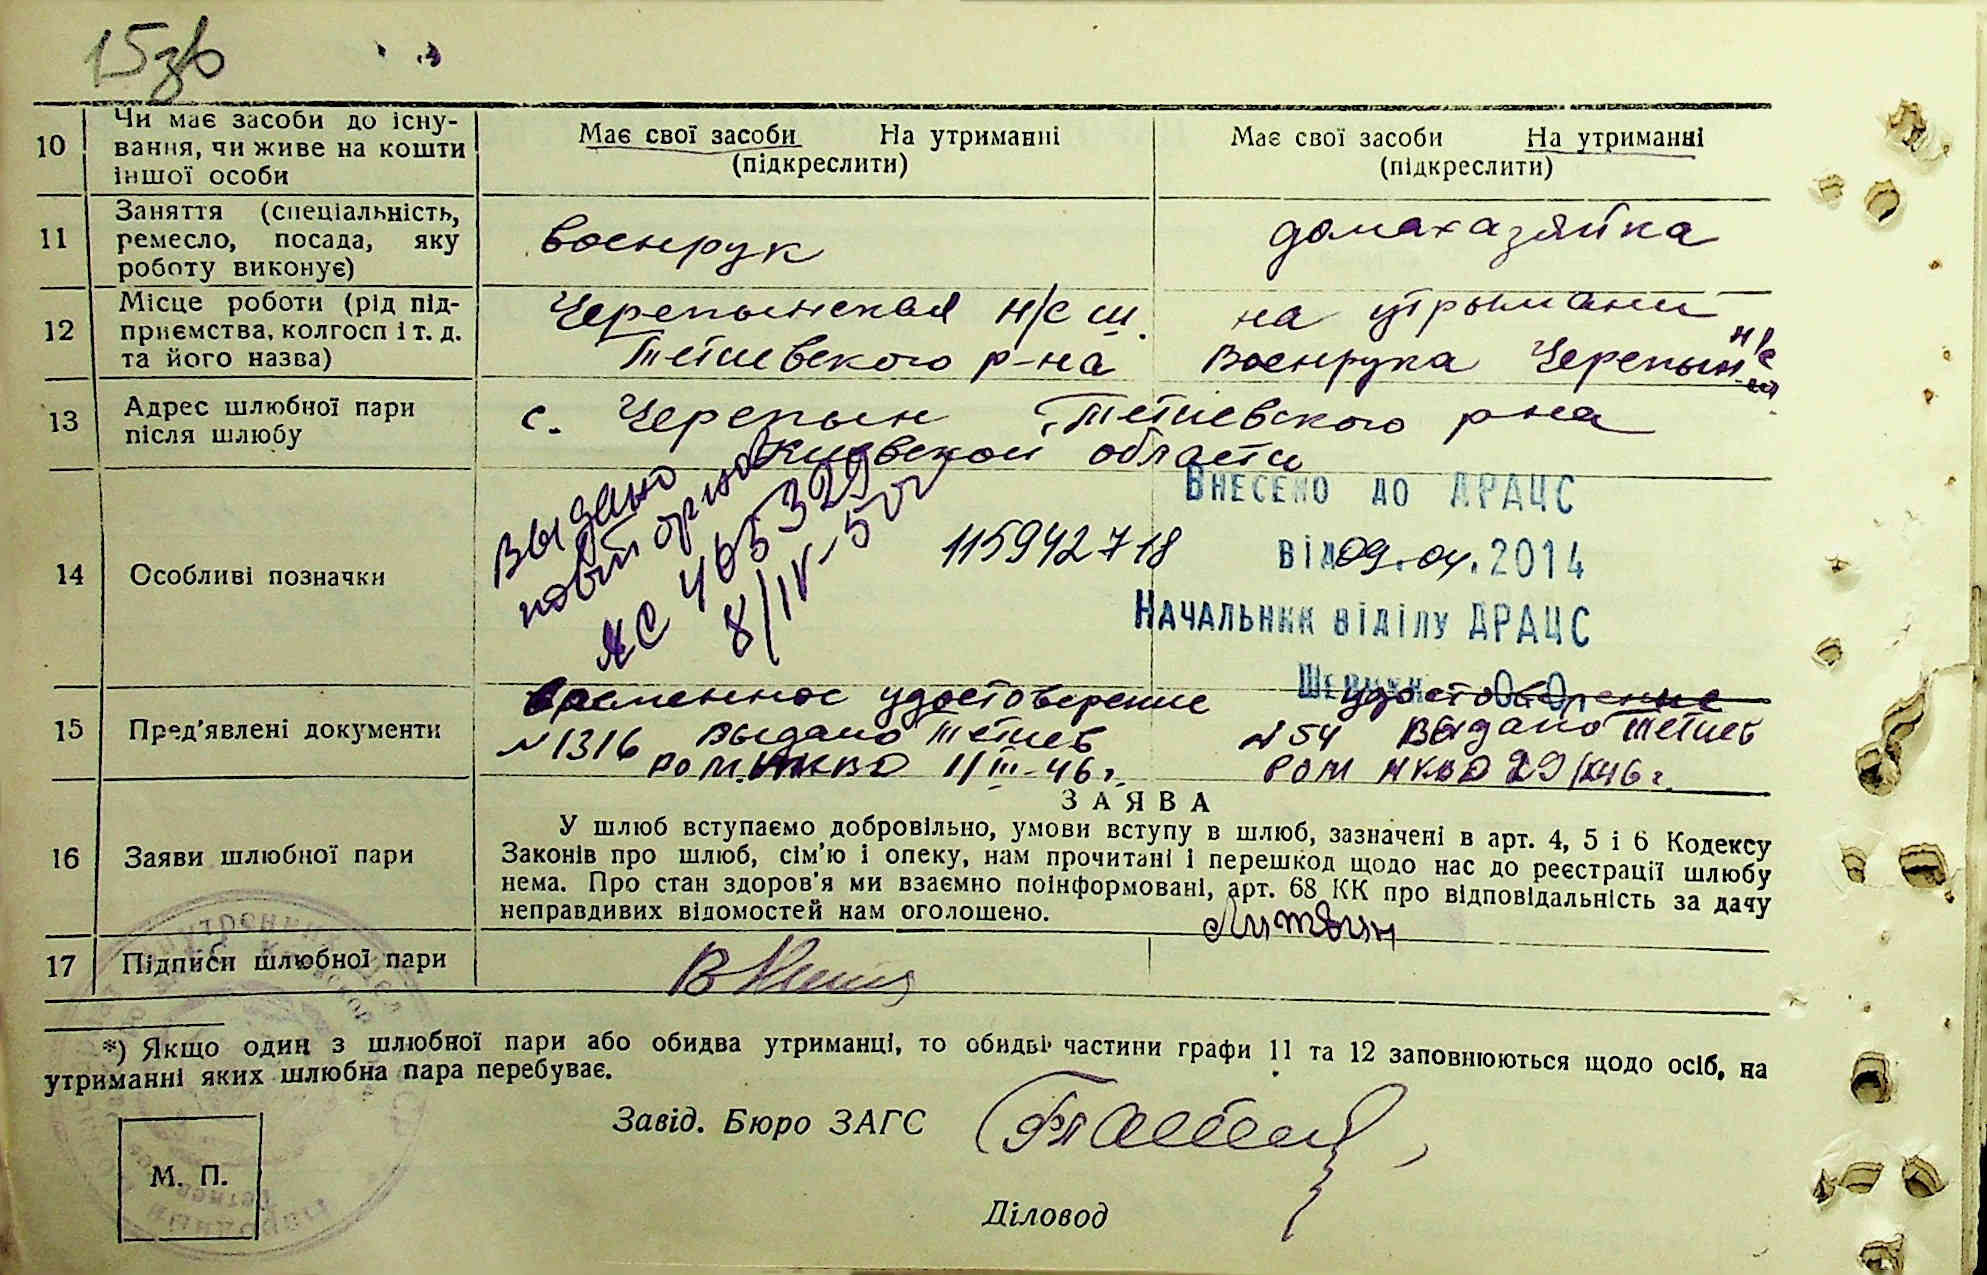 15зв
10 Чи має засоби до існу-
вання, чи живе на кошти
іншої особи
Має свої засоби На утриманні
(підкреслити)
Має свої засоби На утриманні
(підкреслити)
11 Заняття (спеціальність,
ремесло, посада, яку
роботу виконує)
военрук
домахазяйка
12 Місце роботи (рід під-
приємства, колгосп і т. д.
та його назва)
Черепынская н/с ш.
Тетиевского р-на
на утрымани
Военрука Черепын
н/с
13 Адрес шлюбної пари
після шлюбу
с. Черепын Тетиевского рна
Киевской области
14 Особливі позначки
Выдано
повторное
ЯС 465329
8/IV-50г
115942718
Внесено до ДРАЦС
від 09.04.2014
Начальник відділу ДРАЦС
15 Пред'явлені документи
временное удостоверение
N 1316 выдано Тетиев
РОМ. НКВД 1/III-46г.
удостоверение
N 54 выдано Тетиев
РОМ НКВД
16 Заяви шлюбної пари
ЗАЯВА
У шлюб вступаємо добровільно, умови вступу в шлюб, зазначені в арт. 4, 5 і 6 Кодексу
Законів про шлюб, сім'ю і опеку, нам прочитані і перешкод щодо нас до реєстрації шлюбу
нема. Про стан здоров'я ми взаємно поінформовані, арт. 68 КК про відповідальність за дачу
неправдивих відомостей нам оголошено.
Литвин
17 Підписи шлюбної пари
*) Якщо один з шлюбної пари або обидва утриманці, то обидві частини графи 11 та 12 заповнюються щодо осіб, на
утриманні яких шлюбна пара перебуває.
Завід. Бюро ЗАГС
М. П.
Діловод